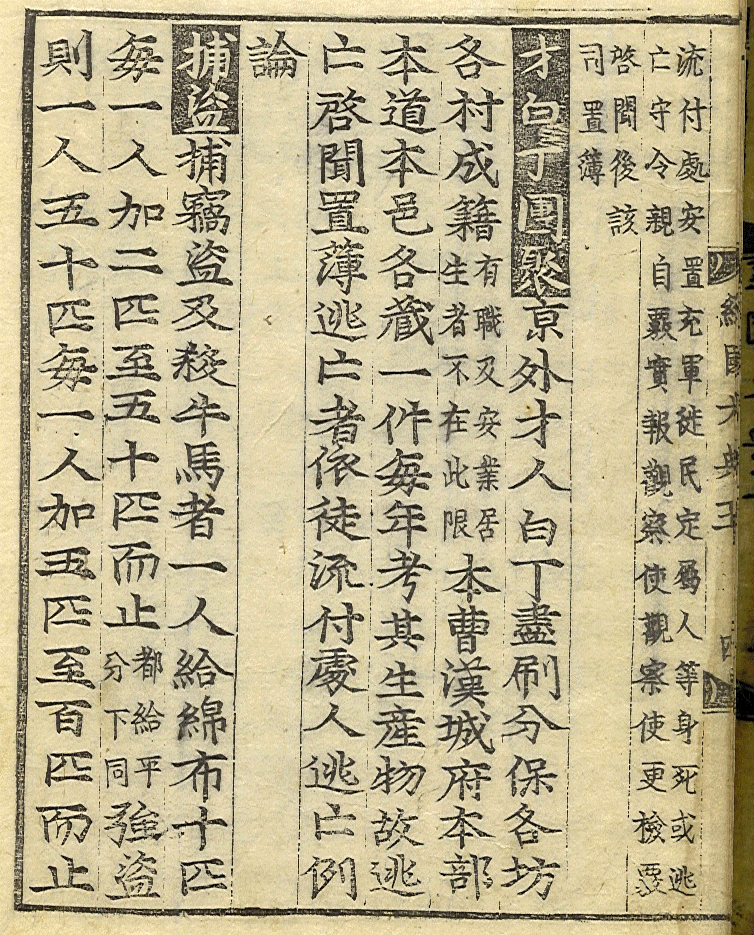 流付處安置充軍徒民定屬人等身死或逃
亡守令親自覈實報觀察使觀察使更檢覈
啓聞後該
司置簿
才白丁團聚京外才人白丁盡刷分保各坊
各村成籍有職及安業居
生者不在此限本曹漢城府本部
本道本邑各藏一件每年考其生產物故逃
亡啓聞置簿逃亡者依徒流付處人逃亡例
論
捕盜捕竊盜及殺牛馬者一人給綿布十匹
每一人加二匹至五十匹而止都給平
分下同強盜
則一人五十匹每一人加五匹至百匹而止